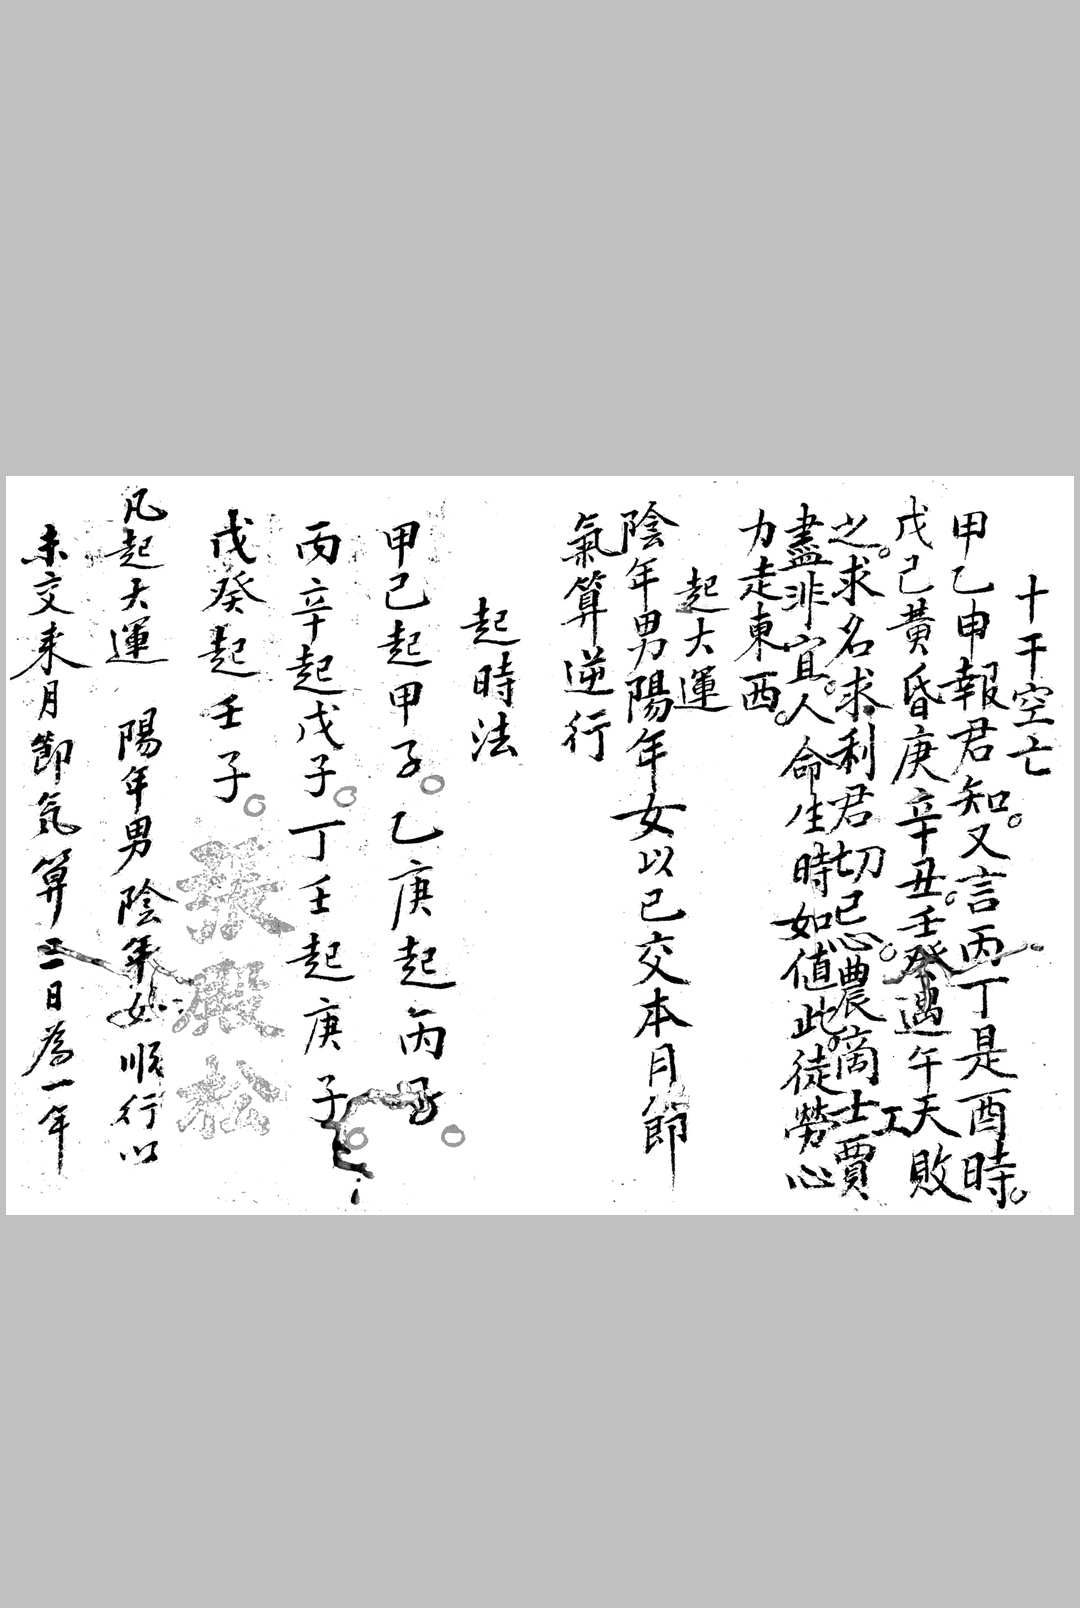 十干空亡
甲乙申報君知。又言丙丁是酉時。
戊己黄昏庚辛丑。壬癸遇午天敗
之。求名求利君切忌。農啇工士賈
盡非宜。人命生時如值此。徒勞心
力走東西。
起大運
陰年男陽年女以已交本月節
氣算逆行
起時法
甲己起甲子。乙庚起丙。
丙辛起戊子。丁壬起庚子。
戊癸起壬子。
張殿松
凡起大運 陽年男陰年女順行以
未交来月節気算三日為一年